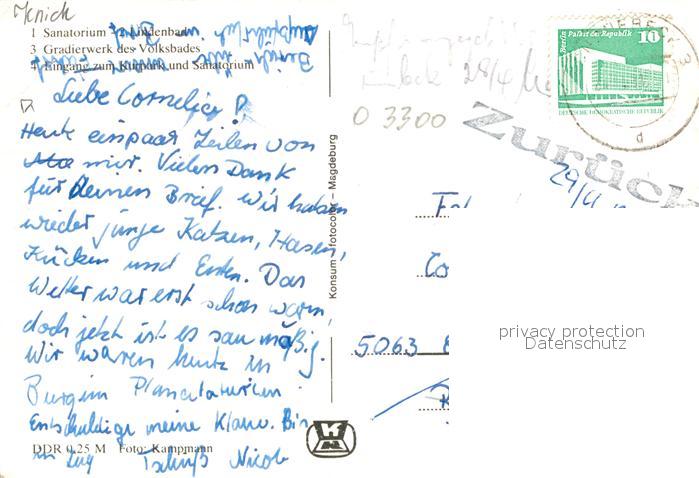 Knick
1 Sanatorium 2 Lindenbad
3 Gradierwerk des Volksbades
4 Eingang zum Kurpark und Sanatorium
Liebe Cornelia!
Heute einpaar Zeilen von
mir. Vielen Dank
für deinen Brief. Wir haben
wieder junge Katzen, Hasen,
Kücken und Enten. Das
Wetter war erst schon warm,
doch jetzt ist es saumäßig.
Wir waren heute in
Burg im Planetatorium
Entschuldige meine Klaue. Bin
im Zug Tschüß Nicole
DDR 0,25 M Foto: Kampmann
Konsum fotocolor - Magdeburg
O 3300
Zurück
29/4
Berlin, Palast der Republik
10
DEUTSCHE DEMOKRATISCHE REPUBLIK
d
Co
5063
privacy protection
Datenschutz